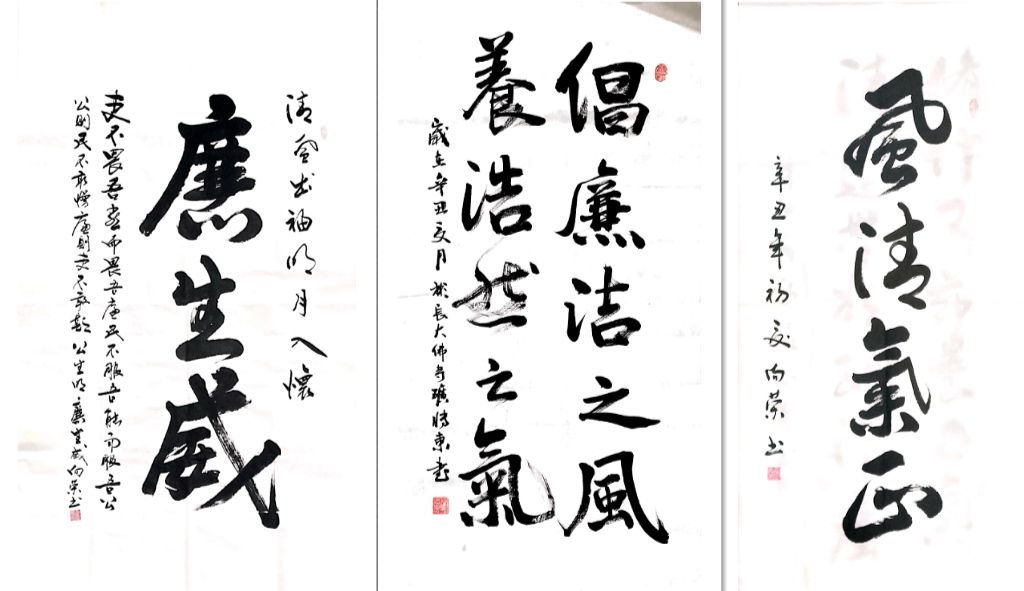 清风出袖明月入懷
廉生威
吏不畏吾嚴而畏吾廉民不服吾能而服吾公
公則民不敢慢廉則吏不敢欺 公生明廉生威向荣书
倡廉洁之風
養浩然之氣
歲在辛丑夏月於長大佛寺勝東書
風清氣正
辛丑年初夏向荣书